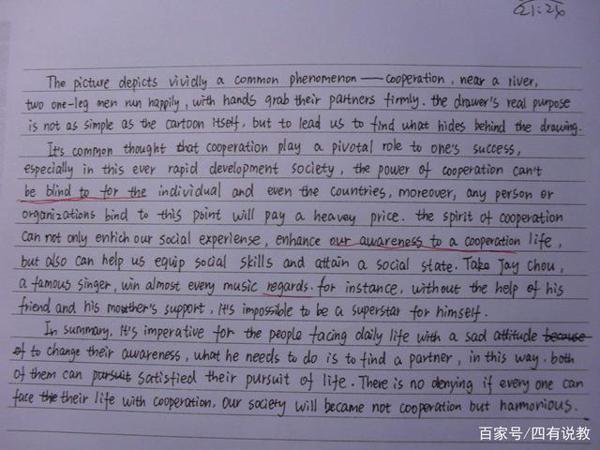 21:24
The picture depicts vividly a common phenomenon — cooperation, near a river,
two one-leg men run happily, with hands grab their partners firmly. the drawer's real purpose
is not as simple as the cartoon itself, but to lead us to find what hides behind the drawing.
It's common thought that cooperation play a pivotal role to one's success,
especially in this ever rapid development society, the power of cooperation can't
be blind to for the individual and even the countries, moreover, any person or
organizations bind to this point will pay a heavey price. the spirit of cooperation
can not only enrich our social experiense, enhance our awareness to a cooperation life,
but also can help us equip social skills and attain a social state. Take Jay Chou,
a famous singer, win almost every music regards. for instance, without the help of his
friend and his mother's support, it's impossible to be a superstar for himself.
In summary, it's imperative for the people facing daily life with a sad attitude because
of to change their awareness, what he needs to do is to find a partner, in this way. both
of them can pursuit satisfied their pursuit of life. There is no denying if every one can
face the their life with cooperation, our society will became not cooperation but harmonious.
百家号/四有说教